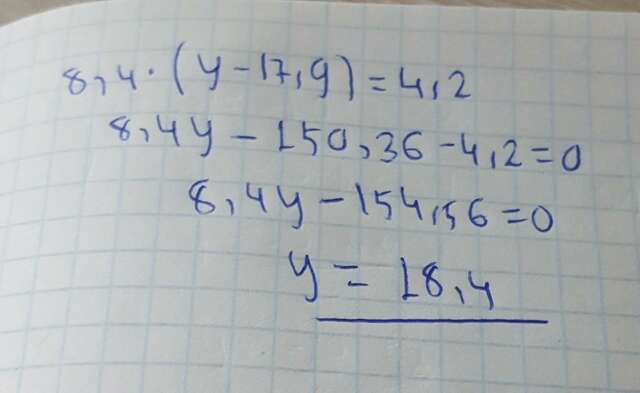 8,4·(y-17,9)=4,2
8,4y-150,36-4,2=0
8,4y-154,56=0
y=18,4